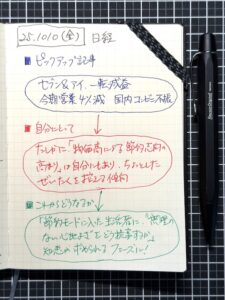 25.10.10(金) 日経
■ピックアップ記事
セブン&アイ、一転減益
今期営業4%減 国内コンビニ不振
■自分にとって
たしかに「物価高による節約志向の
高まり」は自分にもあり、ちょっとした
ぜいたくを控える傾向
■これからどうなるか
「節約モードに入った生活者に「無理の
ない心地よさ」をどう提案するか」
知恵の求められるフェーズに!